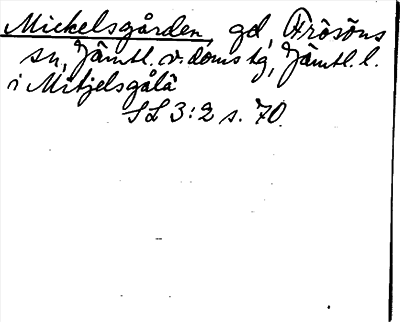 Mickelsgården, gd, Frösöns
sn, Jämtl. v. doms tg, Jämtl. l.
i Mitjelsgålå
SL 3:2 s. 70.